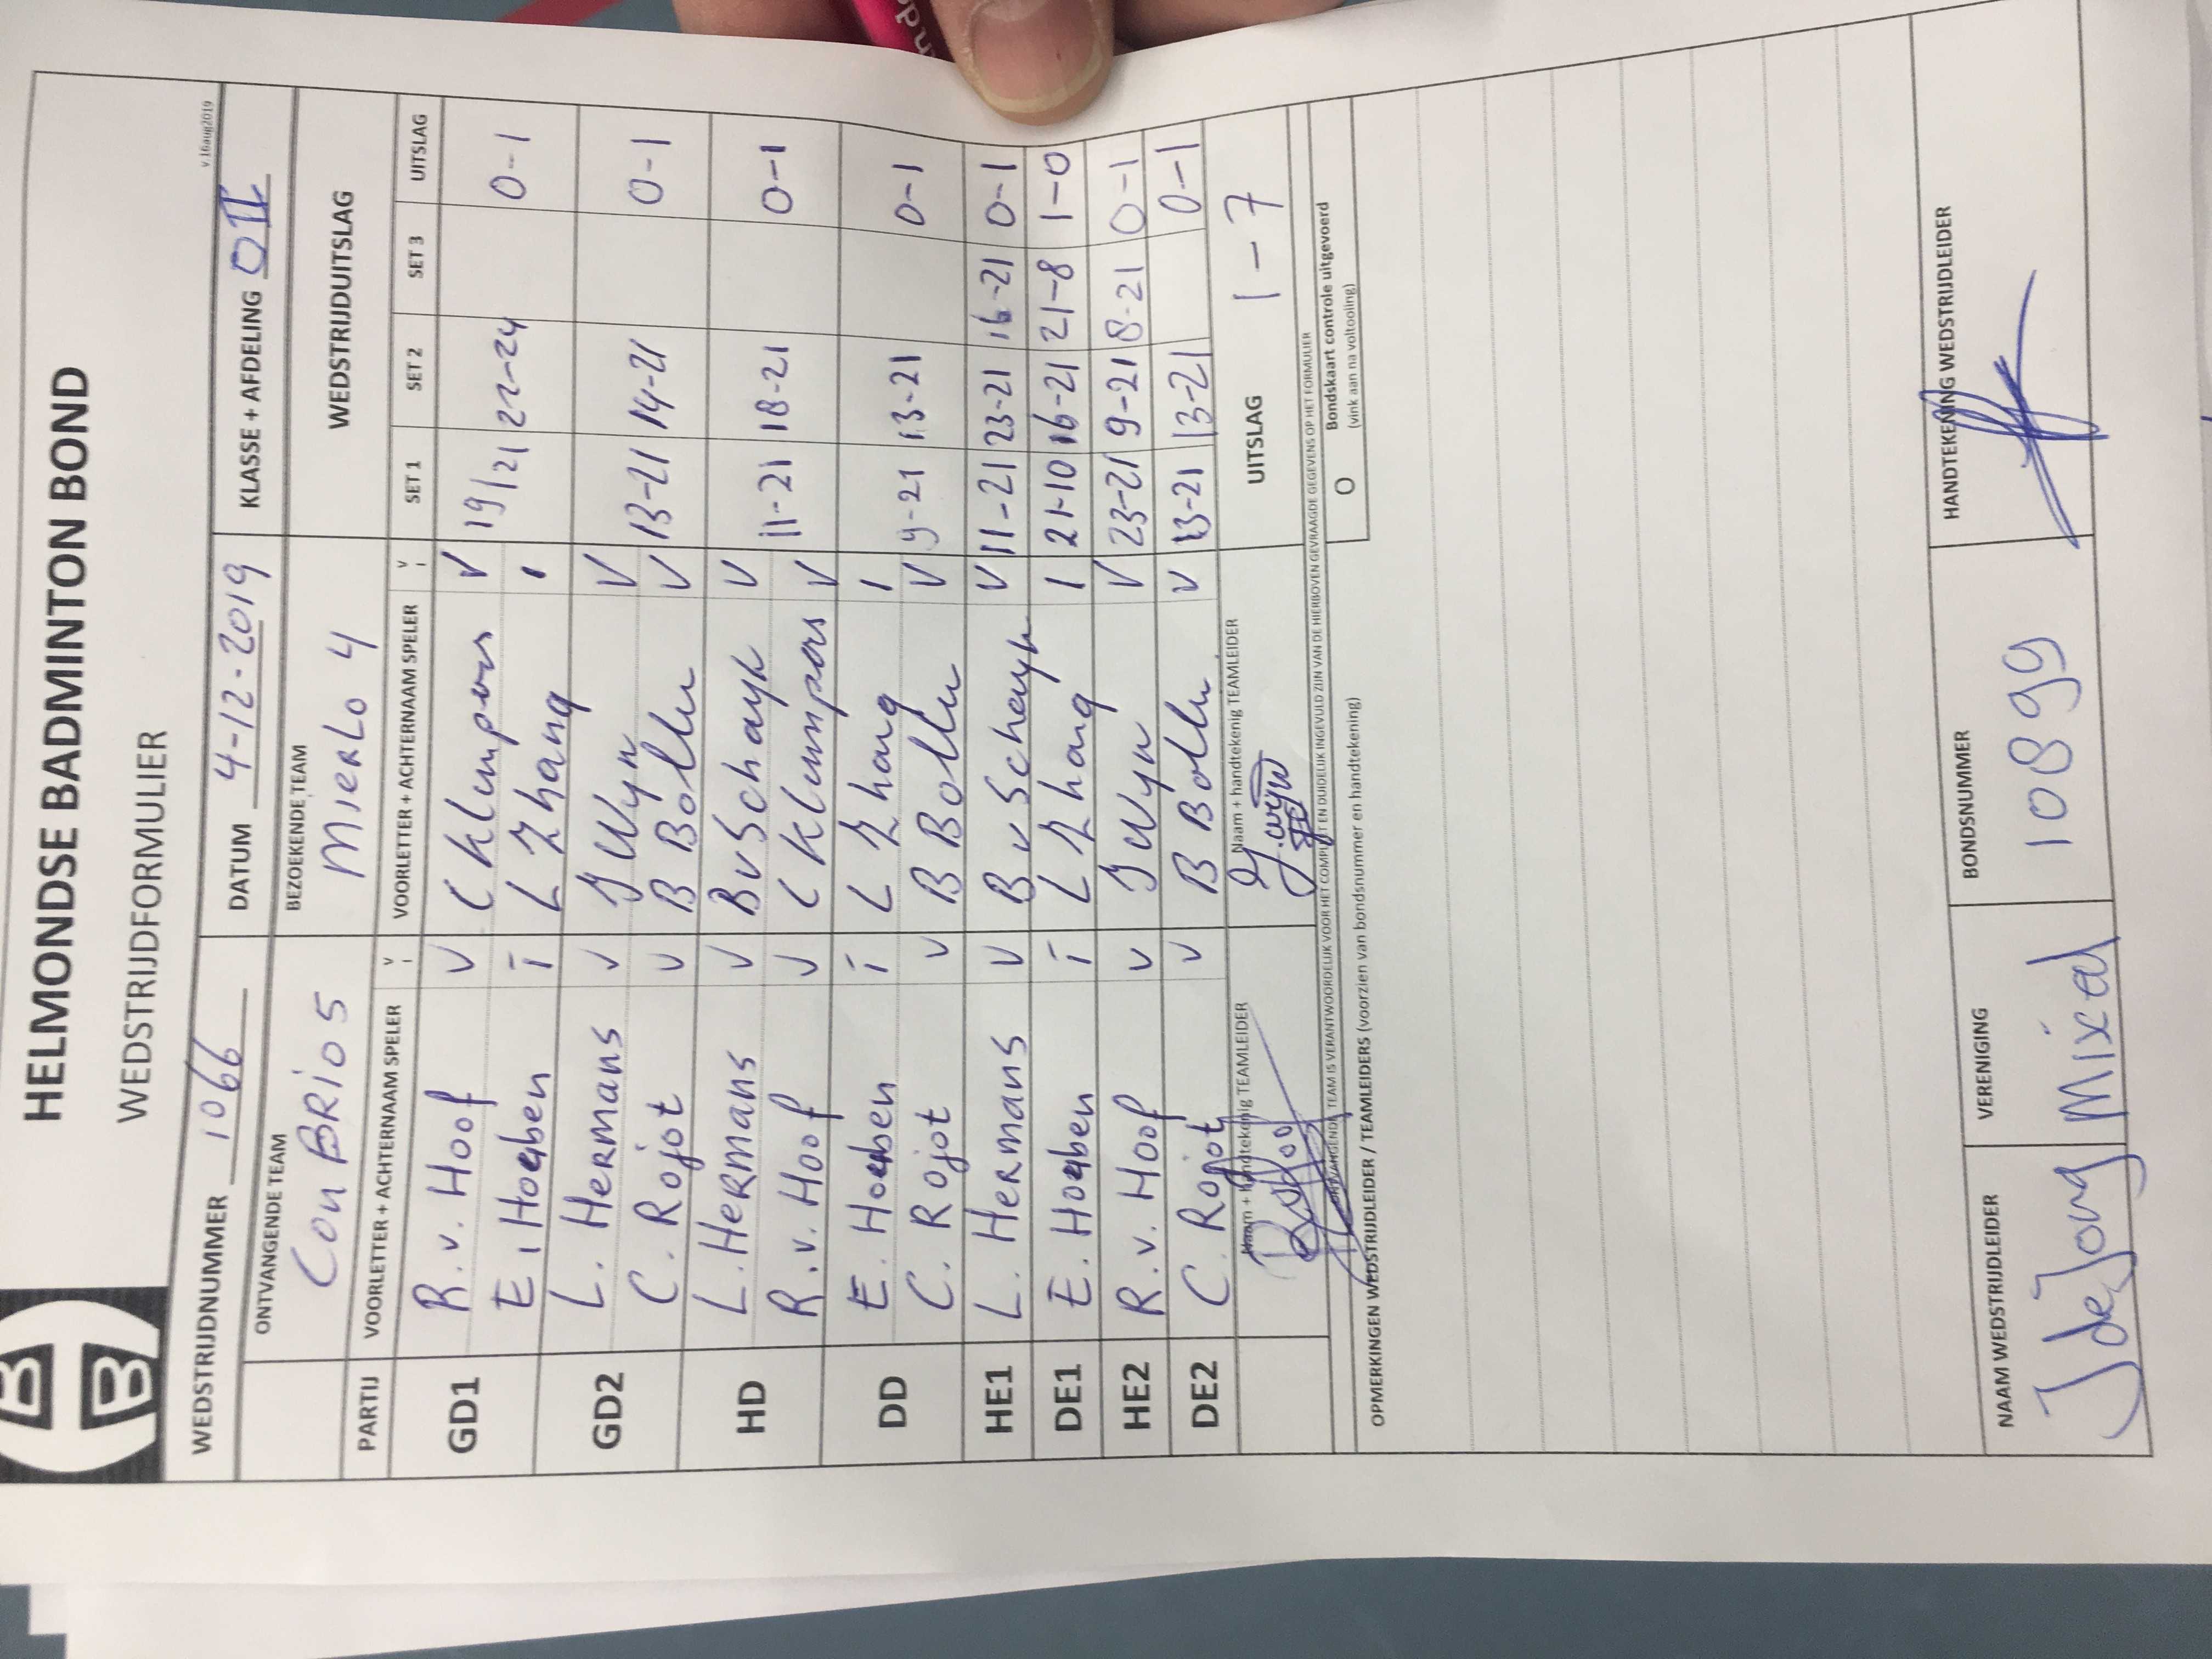 HELMONDSE BADMINTON BOND
WEDSTRIJDFORMULIER
v.16aug2019
WEDSTRIJDNUMMER 1066 DATUM 4-12-2019 KLASSE + AFDELING OII
ONTVANGENDE TEAM BEZOEKENDE TEAM WEDSTRIJDUITSLAG
Con BRio 5 MIERLO 4
PARTIJ VOORLETTER + ACHTERNAAM SPELER V I VOORLETTER + ACHTERNAAM SPELER V I SET 1 SET 2 SET 3 UITSLAG
GD1 R. v. Hoof V C Klumpers V 19/21 22-24 0-1
E. Hoeben i L Zhang I
GD2 L. Hermans V J Wyn V 13-21 14-21 0-1
C. Rojot V B Bollu V
HD L. Hermans V B v Schayk V 11-21 18-21 0-1
R. v. Hoof V C Klumpers V
DD E. Hoeben i L Zhang I 9-21 13-21 0-1
C. Rojot V B Bollu V
HE1 L. Hermans V B v Schayk V 11-21 23-21 16-21 0-1
DE1 E. Hoeben i L Zhang I 21-10 16-21 21-8 1-0
HE2 R. v. Hoof V J Wyn V 23-21 9-21 8-21 0-1
DE2 C. Rojot V B Bollu V 13-21 13-21 0-1
Naam + handtekenig TEAMLEIDER Naam + handtekenig TEAMLEIDER UITSLAG 1-7
HET ONTVANGENDE TEAM IS VERANTWOORDELIJK VOOR HET COMPLEET EN DUIDELIJK INGEVULD ZIJN VAN DE HIERBOVEN GEVRAAGDE GEGEVENS OP HET FORMULIER
O Bondskaart controle uitgevoerd
(vink aan na voltooiing)
OPMERKINGEN WEDSTRIJDLEIDER / TEAMLEIDERS (voorzien van bondsnummer en handtekening)
NAAM WEDSTRIJDLEIDER VERENIGING BONDSNUMMER HANDTEKENING WEDSTRIJDLEIDER
J de Jong Mixed 10899